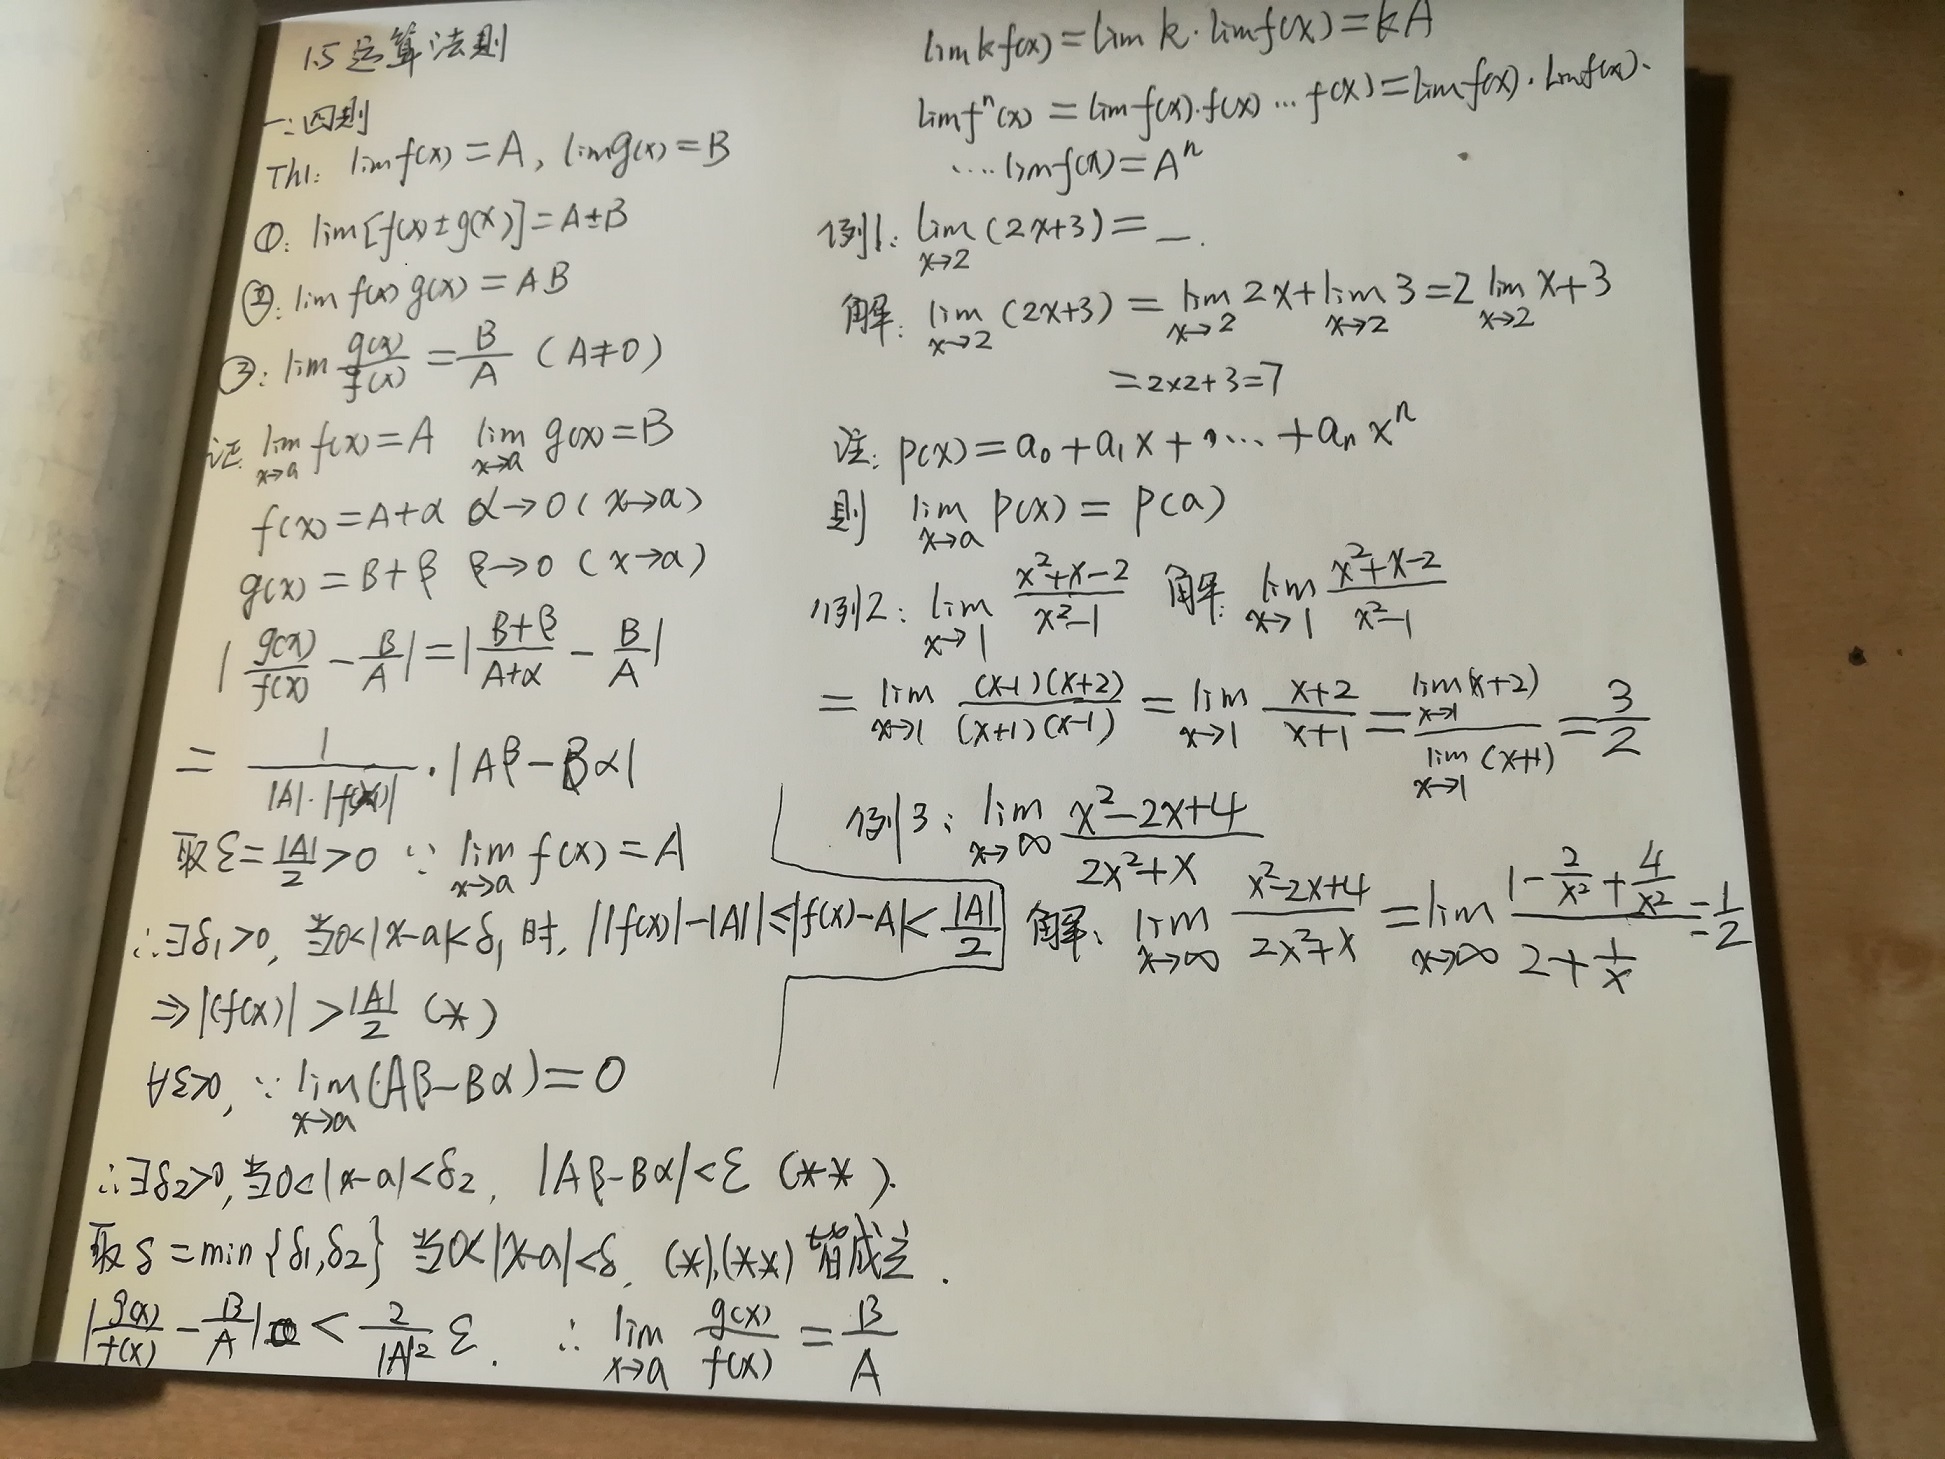 1.5 运算法则
一:四则
Th1: lim f(x) = A, lim g(x) = B
①: lim[f(x) ± g(x)] = A±B
②: lim f(x) g(x) = AB
③: lim g(x)/f(x) = B/A (A≠0)
证: lim_{x→a} f(x) = A  lim_{x→a} g(x) = B
f(x) = A+α  α→0 (x→a)
g(x) = B+β  β→0 (x→a)
| g(x)/f(x) − B/A | = | (B+β)/(A+α) − B/A |
= 1/(|A|·|f(x)|) · |Aβ−Bα|
取 ε = |A|/2 > 0 ∵ lim_{x→a} f(x) = A
∴ ∃δ₁>0, 当0<|x−a|<δ₁ 时, ||f(x)|−|A|| ≤ |f(x)−A| < |A|/2
⇒ |f(x)| > |A|/2 (*)
∀ε>0, ∵ lim_{x→a} (Aβ−Bα) = 0
∴ ∃δ₂>0, 当0<|x−a|<δ₂, |Aβ−Bα|<ε (**).
取 δ = min{δ₁,δ₂} 当0<|x−a|<δ, (*),(**) 皆成立.
| g(x)/f(x) − B/A | < 2/|A|² ε. ∴ lim_{x→a} g(x)/f(x) = B/A
lim k f(x) = lim k · lim f(x) = kA
lim fⁿ(x) = lim f(x)·f(x) … f(x) = lim f(x) · lim f(x)·
…. lim f(x) = Aⁿ
例1: lim_{x→2} (2x+3) = _.
解: lim_{x→2} (2x+3) = lim_{x→2} 2x + lim_{x→2} 3 = 2 lim_{x→2} x+3
= 2×2+3 = 7
注: p(x) = a₀ + a₁x + …. + aₙxⁿ
则 lim_{x→a} P(x) = P(a)
例2: lim_{x→1} (x²+x−2)/(x²−1)  解: lim_{x→1} (x²+x−2)/(x²−1)
= lim_{x→1} (x−1)(x+2)/(x+1)(x−1) = lim_{x→1} (x+2)/(x+1) = lim_{x→1}(x+2)/lim_{x→1}(x+1) = 3/2
例3: lim_{x→∞} (x²−2x+4)/(2x²+x)
解: lim_{x→∞} (x²−2x+4)/(2x²+x) = lim_{x→∞} (1−2/x²+4/x²)/(2+1/x) = 1/2